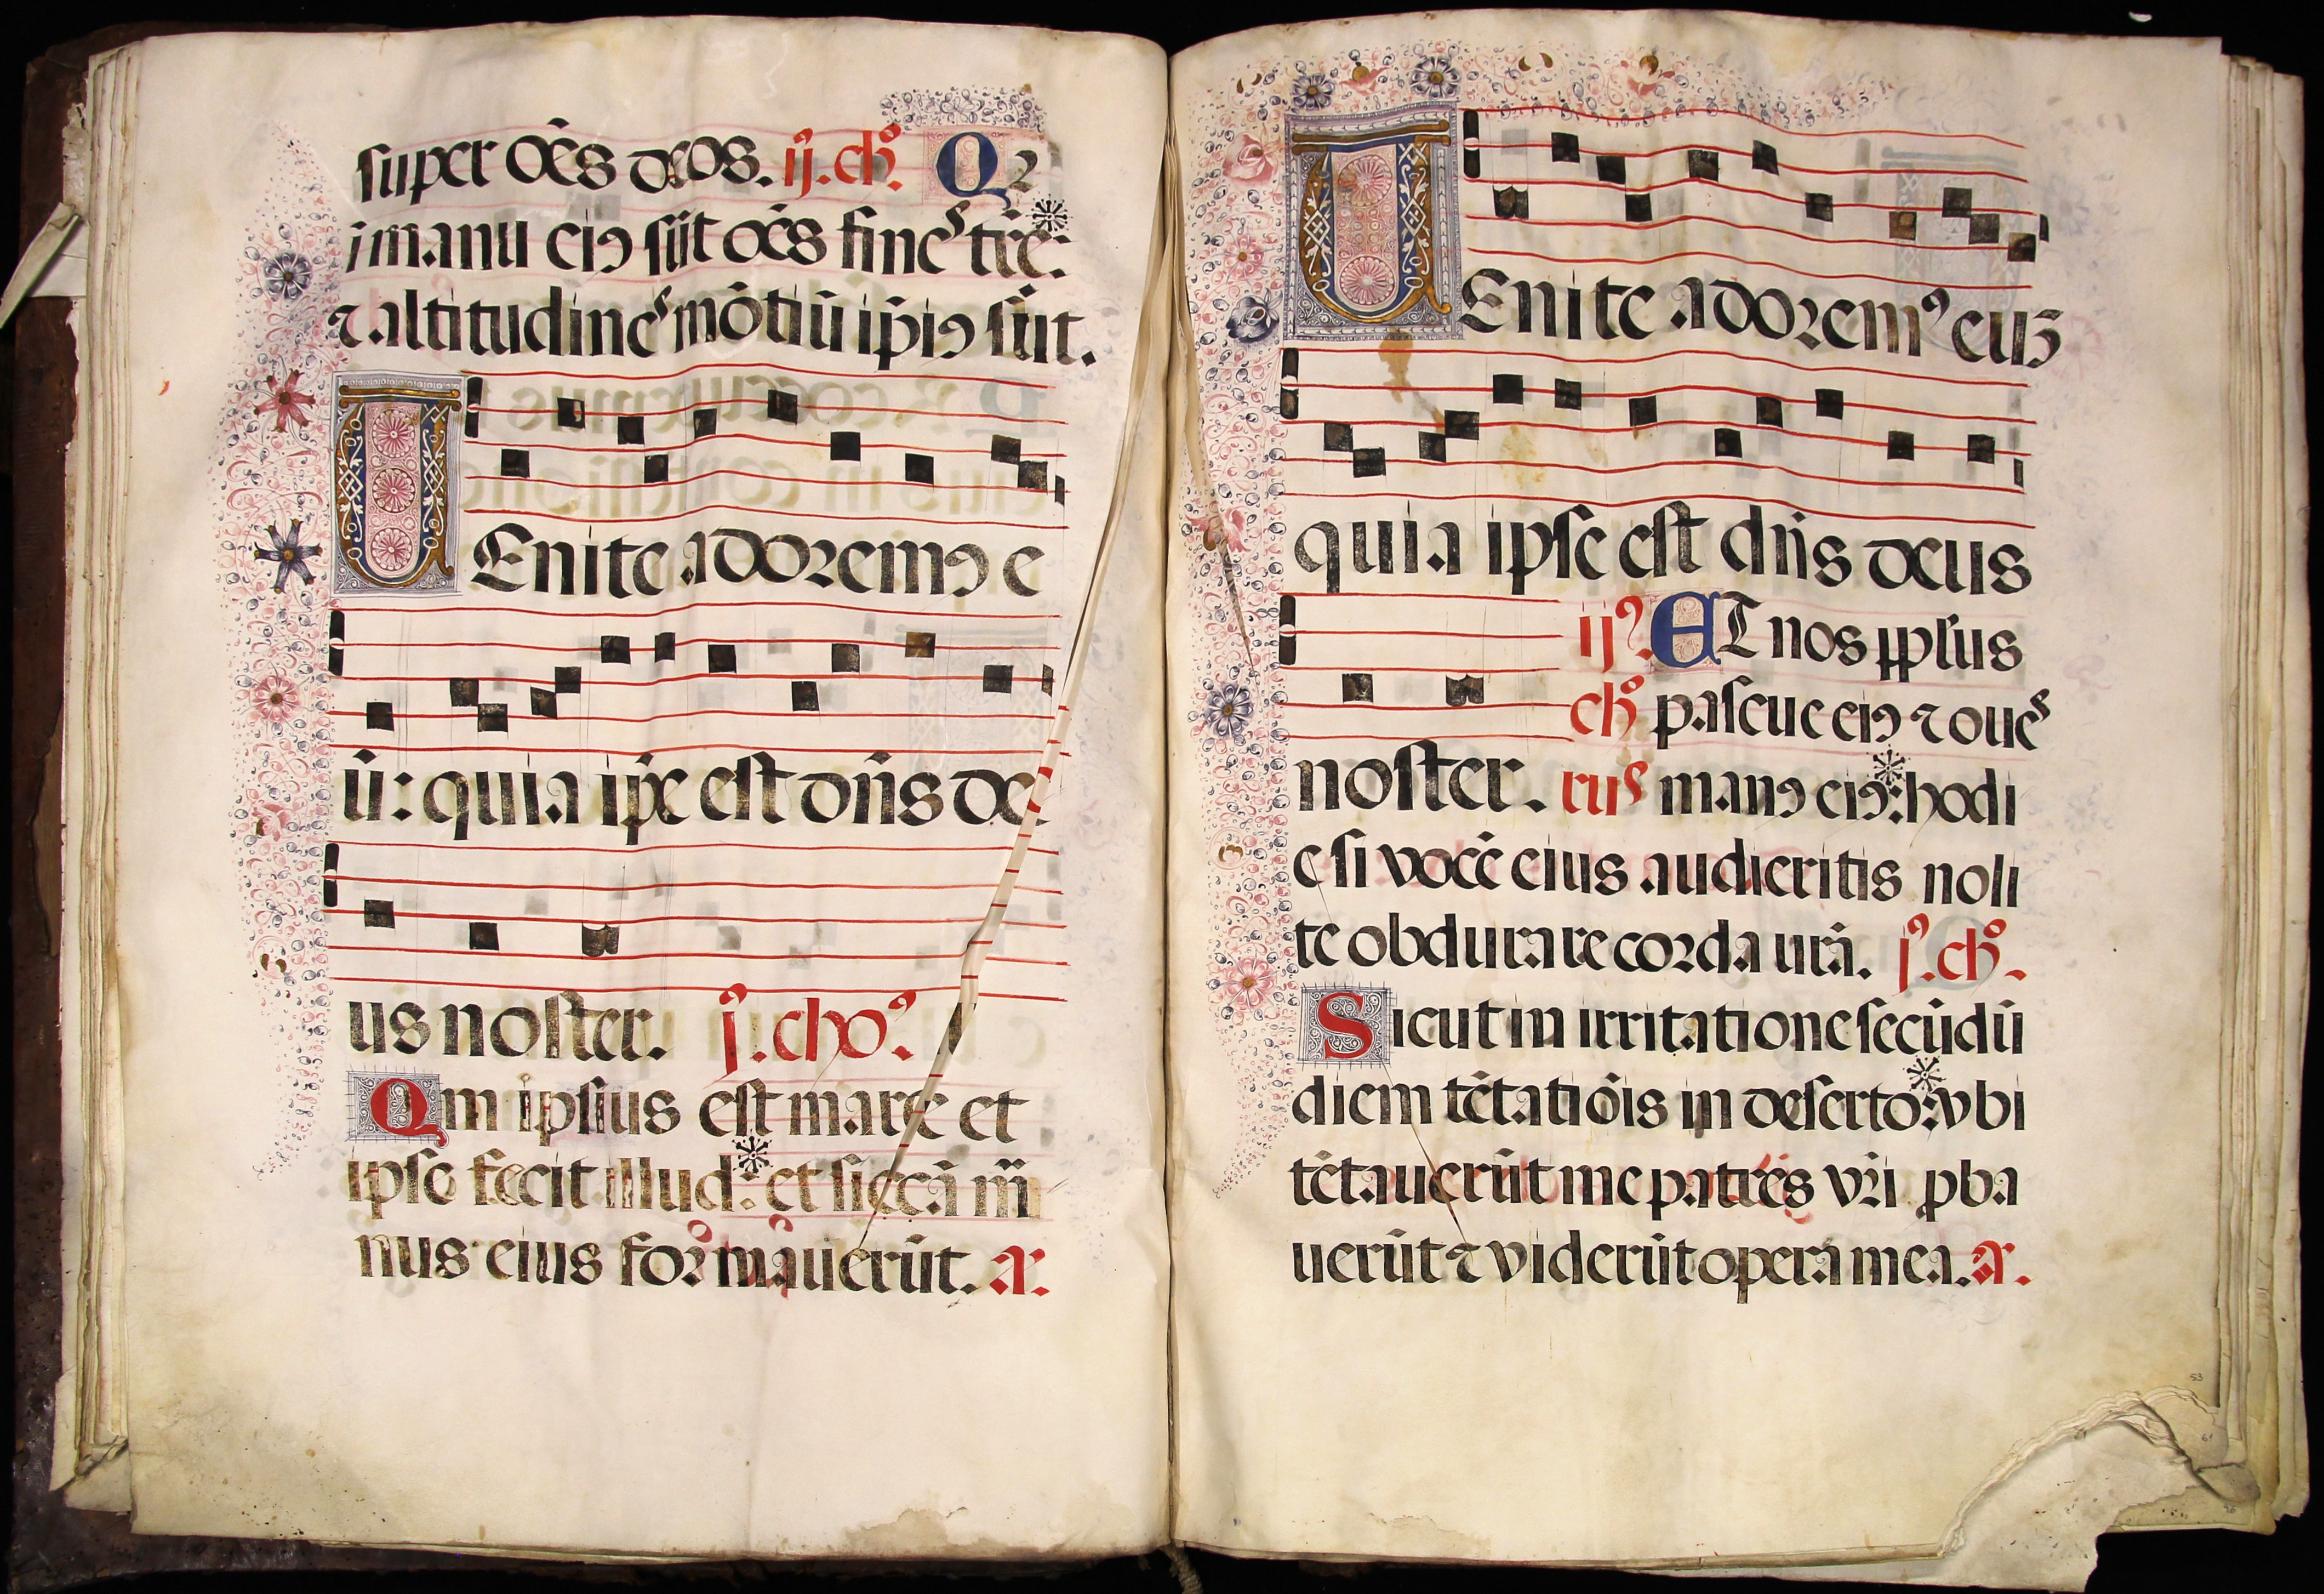 super oēs deos. ij. chº. Qꝛ
i manu eiꝰ sūt oēs fines tr̄e:
⁊ altitudines mōtiū ip̄iꝰ sūt.
UEnite adoremꝰ e
ū: quia ip̄e est dn̄s de
us noster. j. cho?
Qm ipsius est mare et
ipse fecit illud: et siccā m̄
nus eius formauerūt. a.
UEnite adoremꝰ euꝫ
quia ipse est dn̄s deus
ij? ET nos pp̄lus
chº pascue eiꝰ ⁊ oues
noster. rus manꝰ eiꝰ: hodi
e si vocē eius audieritis noli
te obdurare corda ur̄a. j. chº.
Sicut in irritatione secūdū
diem tētatiōis in deserto: vbi
tētauerūt me patres vr̄i ꝓba
uerūt ⁊ viderūt opera mea. a.
53
61